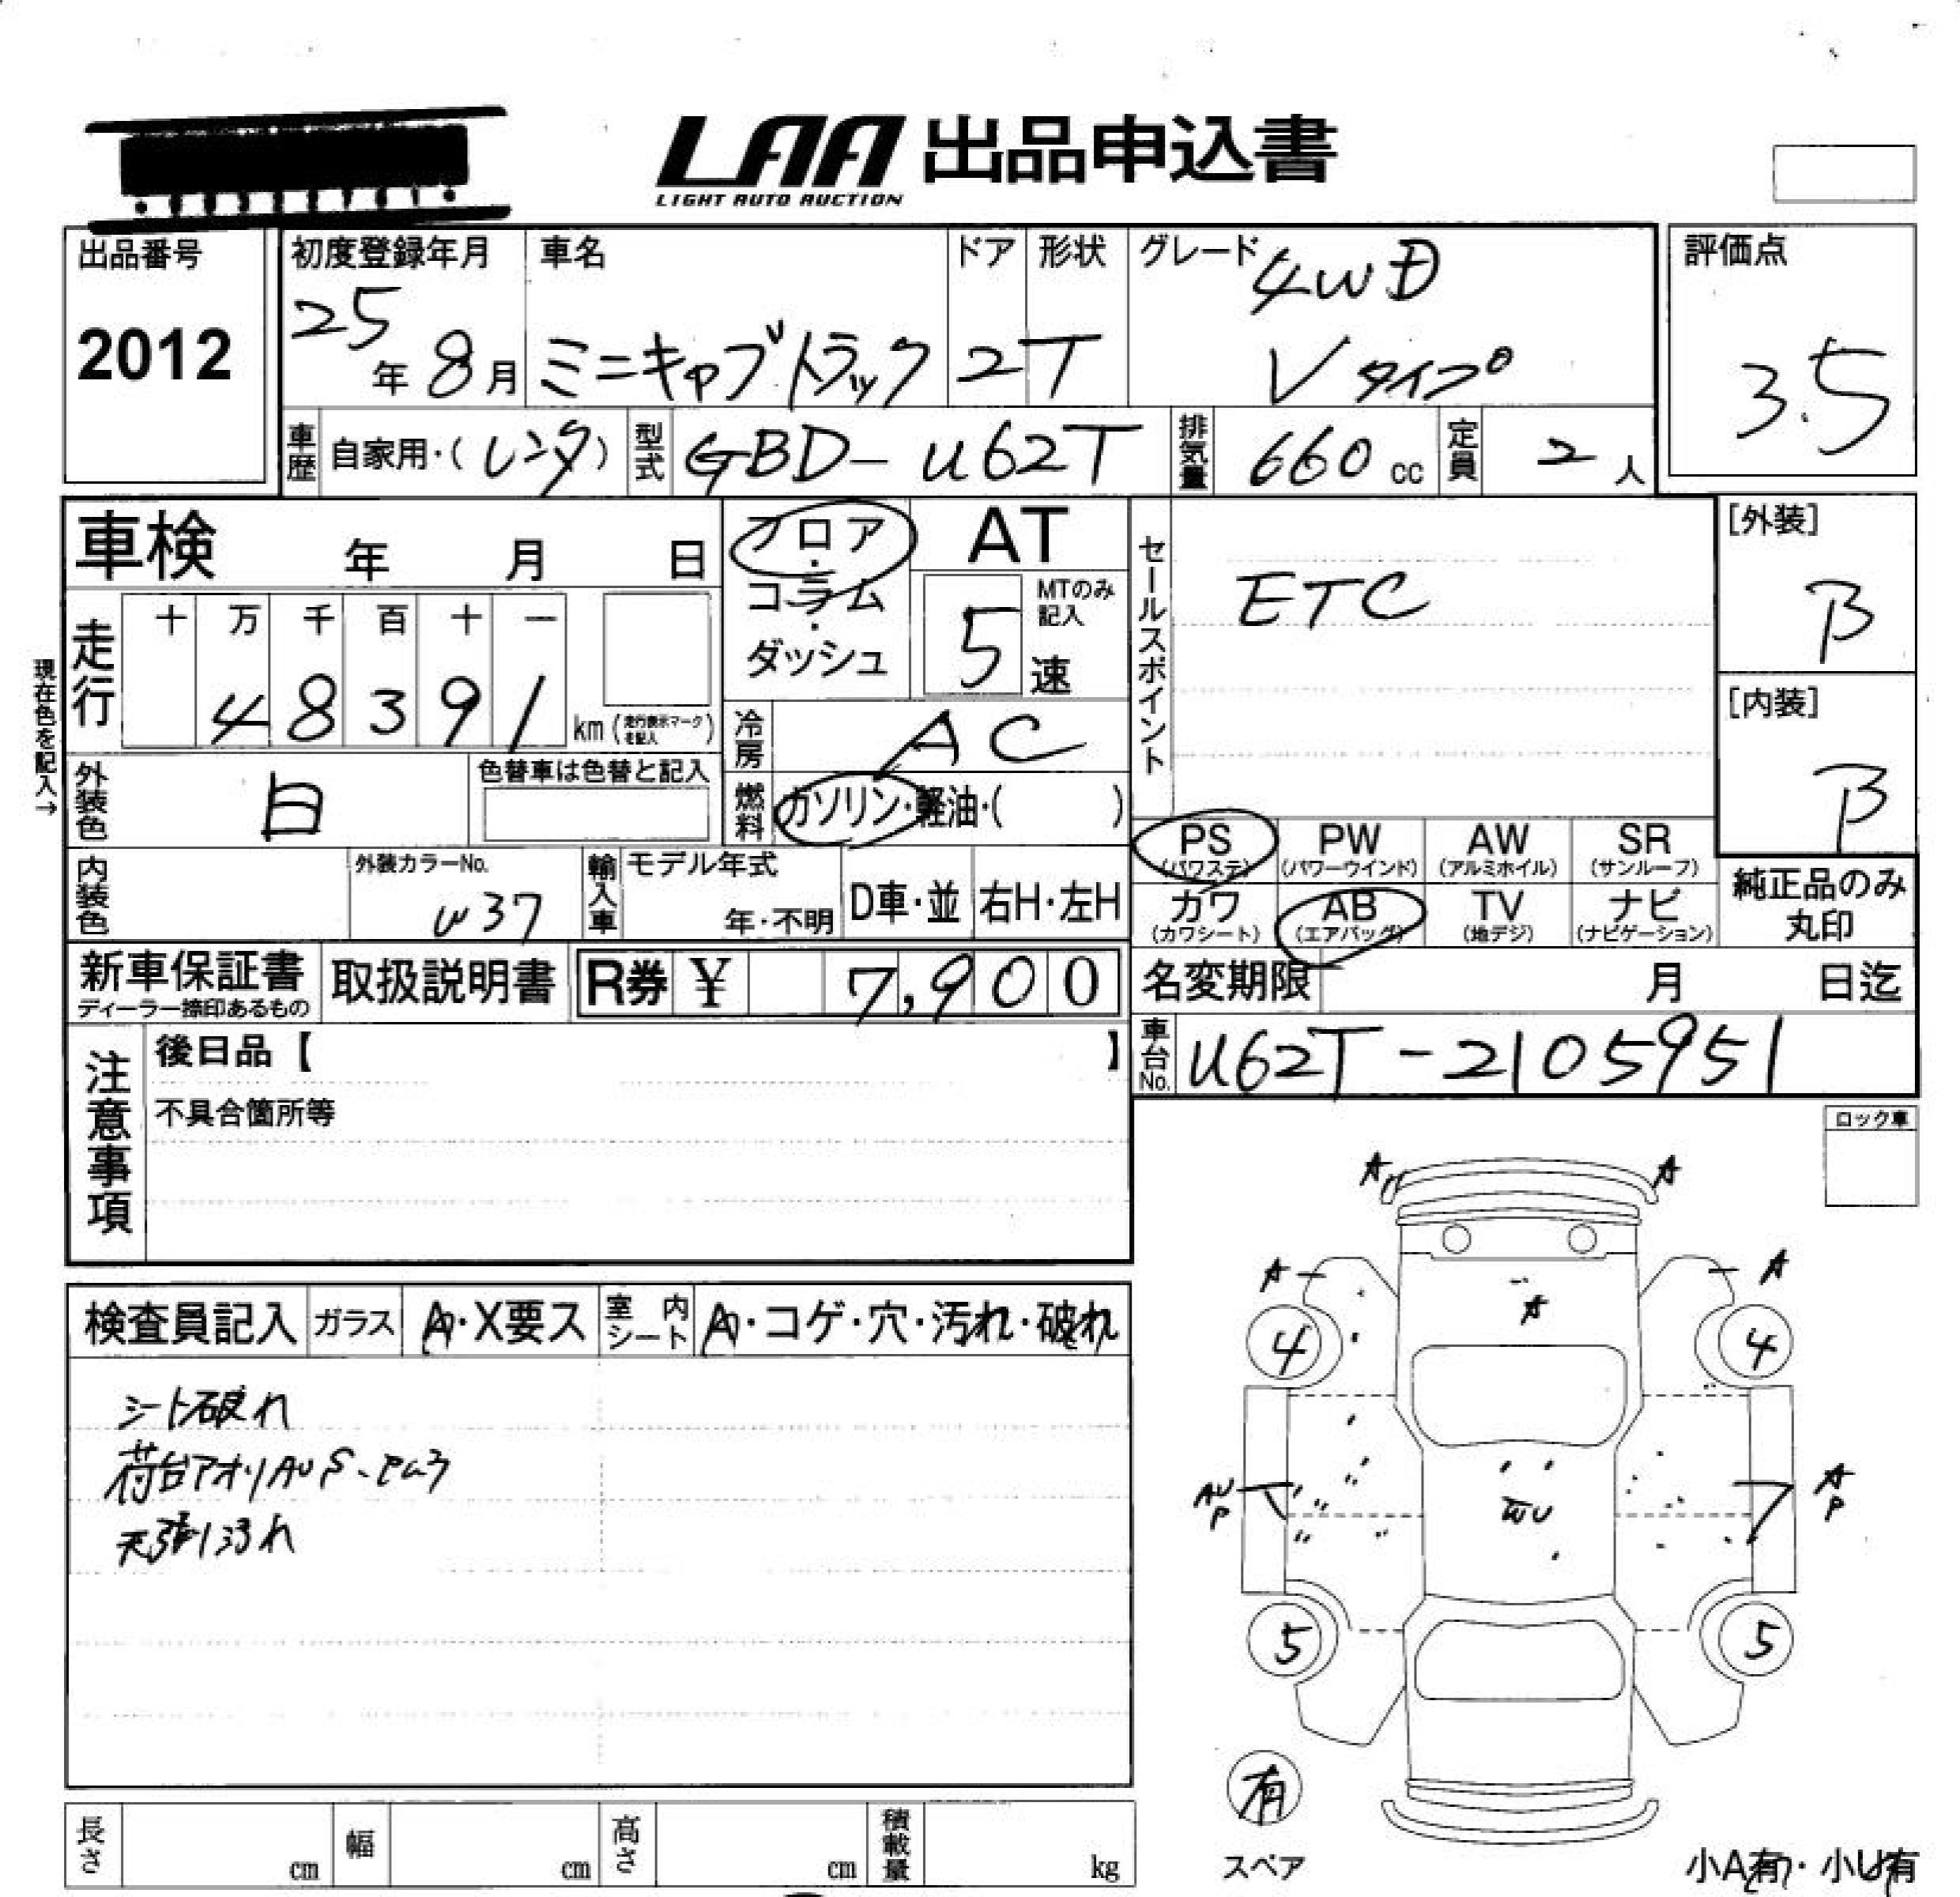 LAA 出品申込書
LIGHT AUTO AUCTION
出品番号
2012
初度登録年月
25年 8月
車名
ミニキャブトラック
ドア
2
形状
T
グレード
4WD
Vタイプ
評価点
3.5
車歴 自家用・(レンタ)
型式 GBD-U62T
排気量 660 cc
定員 2 人
車検 年 月 日
フロア・コラム・ダッシュ
AT
MTのみ記入
5 速
セールスポイント
ETC
[外装]
B
[内装]
B
現在色を記入→
走行 十 万 千 百 十 一
4 8 3 9 1 km (走行表示マークを記入)
冷房 AC
外装色 白
色替車は色替と記入
燃料 ガソリン・軽油・( )
内装色
外装カラーNo.
W37
輸入車 モデル年式
年・不明
D車・並 右H・左H
PS (パワステ) PW (パワーウインド) AW (アルミホイル) SR (サンルーフ)
カワ (カワシート) AB (エアバッグ) TV (地デジ) ナビ (ナビゲーション)
純正品のみ丸印
新車保証書
ディーラー捺印あるもの
取扱説明書
R券 ¥ 7,900
名変期限 月 日迄
車台No. U62T-2105951
注意事項
後日品【 】
不具合箇所等
ロック車
検査員記入 ガラス A・X要ス 室内シート A・コゲ・穴・汚れ・破れ
シート破れ
荷台アオリAUS
天張り汚れ
A A
A A
A
4 4
AU P
WU
A P
5 5
有
スペア
小A有・小U有
長さ cm 幅 cm 高さ cm 積載量 kg